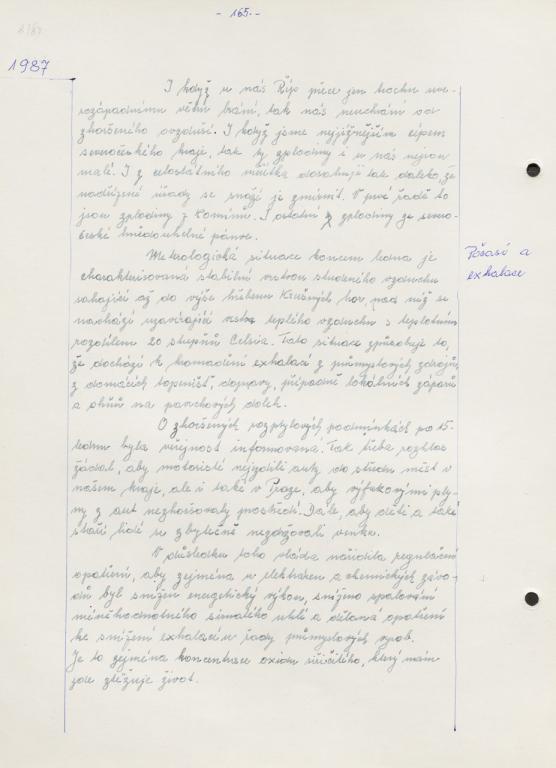 - 165. -
1987
I když u nás Říp přece jen trochu seve-
rozápadnímu větru brání, tak nás neuchrání od
zhoršeného ovzduší. I když jsme nejjižnějším cípem
severočeského kraje, tak ty zplodiny i u nás nejsou
malé. I z celostátního měřítka dosahuje tak daleko, že
nadřízené úřady se snaží je zmírnit. V prvé řadě to
jsou zplodiny z komínů. I ostatní zplodiny ze severo-
české hnědouhelné pánve.
Metrologická situace koncem ledna je
charakterisovaná stabilní vrstvou studeného vzduchu
sahající až do výše hřebenu Krušných hor, nad níž se
nachází uzavírající vrstva teplého vzduchu s teplotním
rozdílem 20 stupňů Celsia. Tato situace způsobuje to,
že dochází k hromadění exhalací z průmyslových zdrojů,
z domácích topenišť, dopravy, případně lokálních záparů
a ohňů na povrchových dolech.
O zhoršených rozptylových podmínkách po 15.
lednu byla veřejnost informovana. Tak třeba rozhlas
žádal, aby motoristé nejezdili auty do středu měst v
našem kraje, ale i také v Praze, aby výfukovými ply-
ny z aut nezhoršovaly prostředí. Dále, aby děti a také
staří lidé se zbytečně nezdržovali venku.
V důsledku toho vláda nařídila regulační
opatření, aby zejména v elektráren a chemických závo-
dů byl snížen energetický výkon, sníženo spalování
méněhodnotného sirnatého uhlí a dělaná opatření
ke snížení exhalací u řady průmyslových výrob.
Je to zejména koncentrace oxidu siřičitého, který nám
zde ztěžuje život.
Počasí a
exhalace